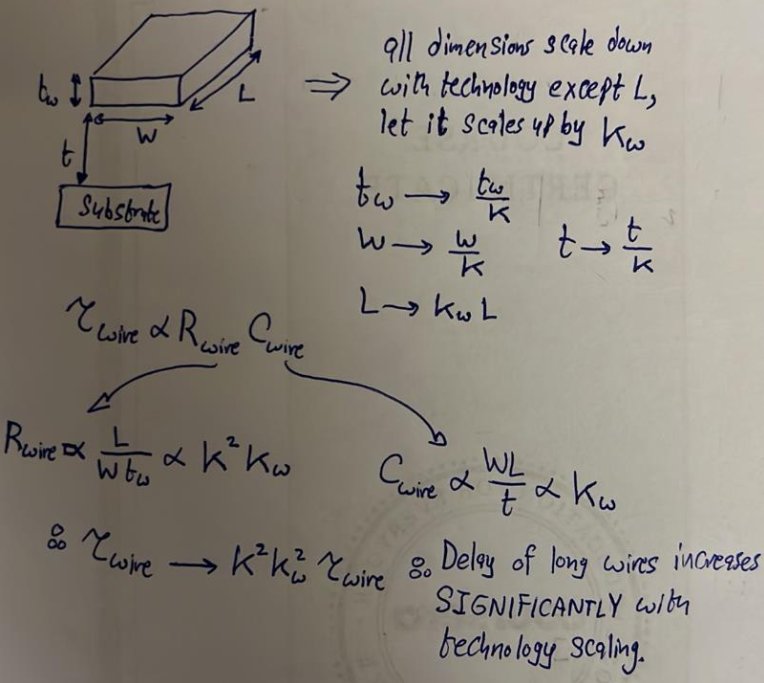 all dimensions scale down
with technology except L,
let it scales up by Kω
tω
W
L
t
Substrate
⇒
tω → tω/K
W → W/K t → t/K
L → Kω L
τwire ∝ Rwire Cwire
Rwire ∝ L/(W tω) ∝ K² Kω
Cwire ∝ WL/t ∝ Kω
∴ τwire → K² Kω² τwire ∴ Delay of long wires increases
SIGNIFICANTLY with
technology scaling.